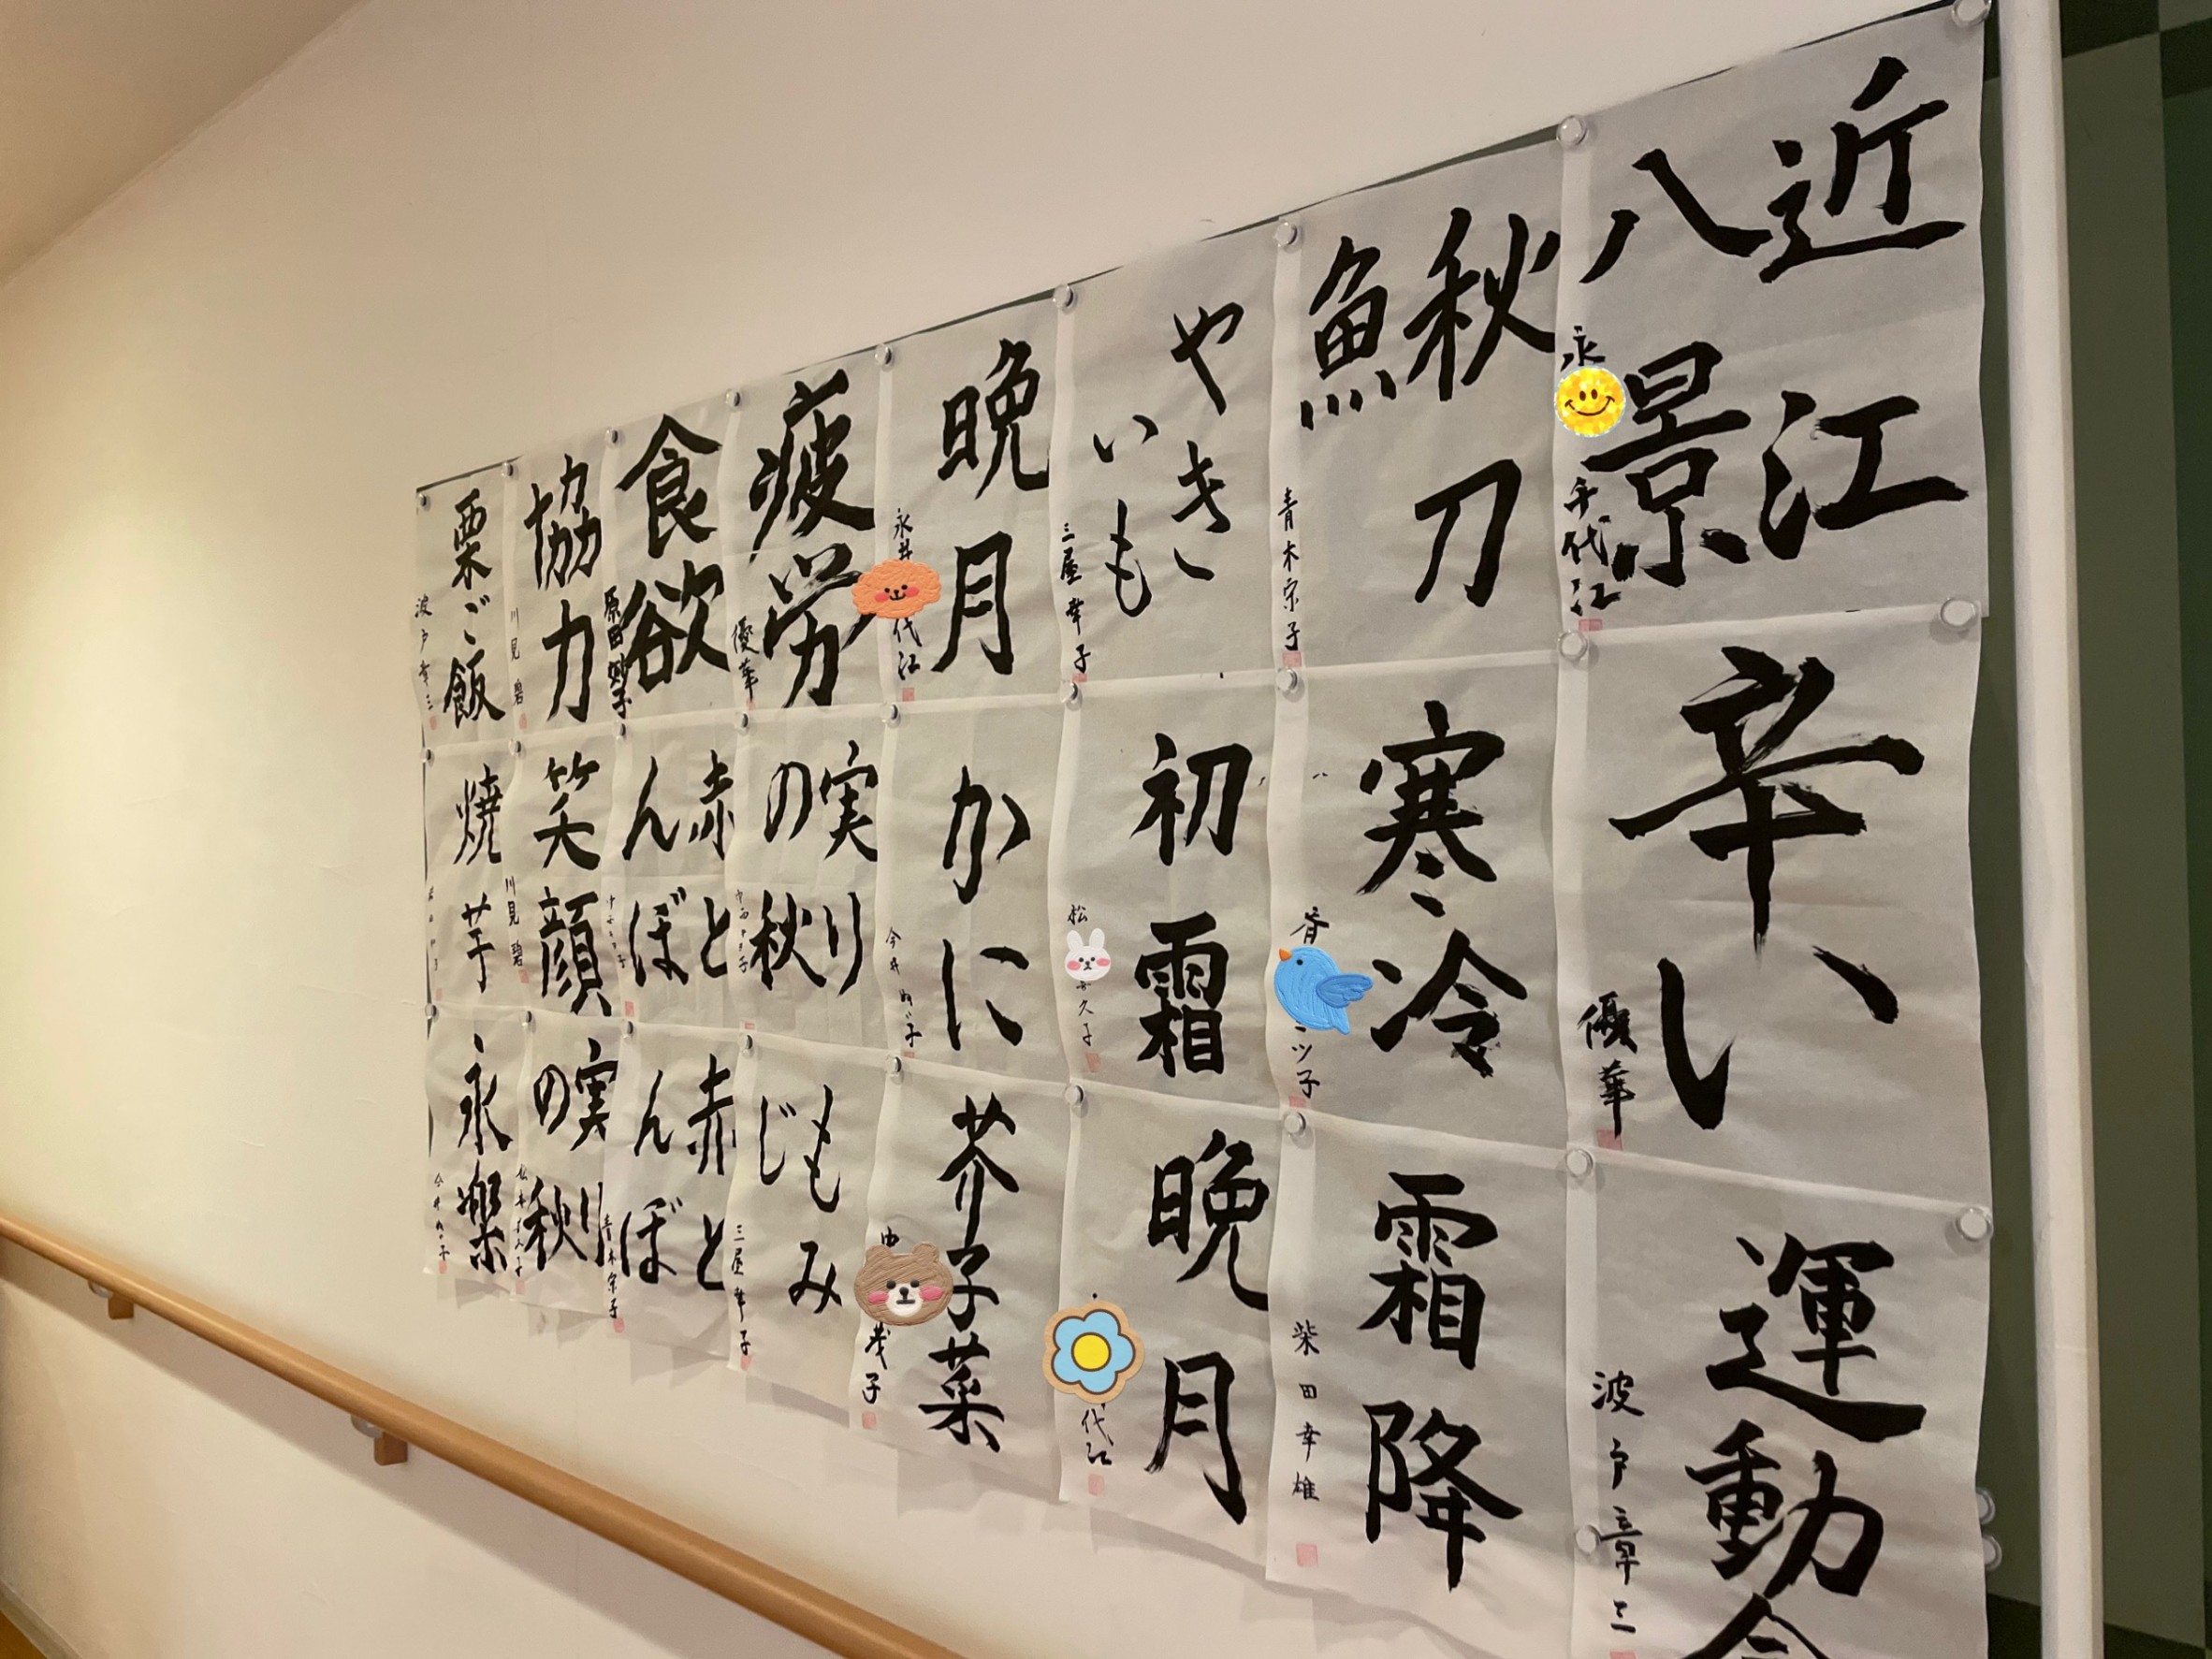 近江
八景
永
千代江
秋刀
魚
青木宗子
やき
いも
三屋幸子
晩月
永井
代江
疲労
優華
食欲
原田
協力
川見 碧
栗ご飯
波戸章三
辛い
優華
寒冷
ツ子
初霜
松
久子
かに
今井
実り
の秋
赤と
んぼ
笑顔
川見 碧
焼芋
運動会
波戸章三
霜降
柴田幸雄
晩月
代江
芥子菜
由
茂子
もみ
じ
三屋幸子
赤と
んぼ
青木宗子
実り
の秋
永楽
今井